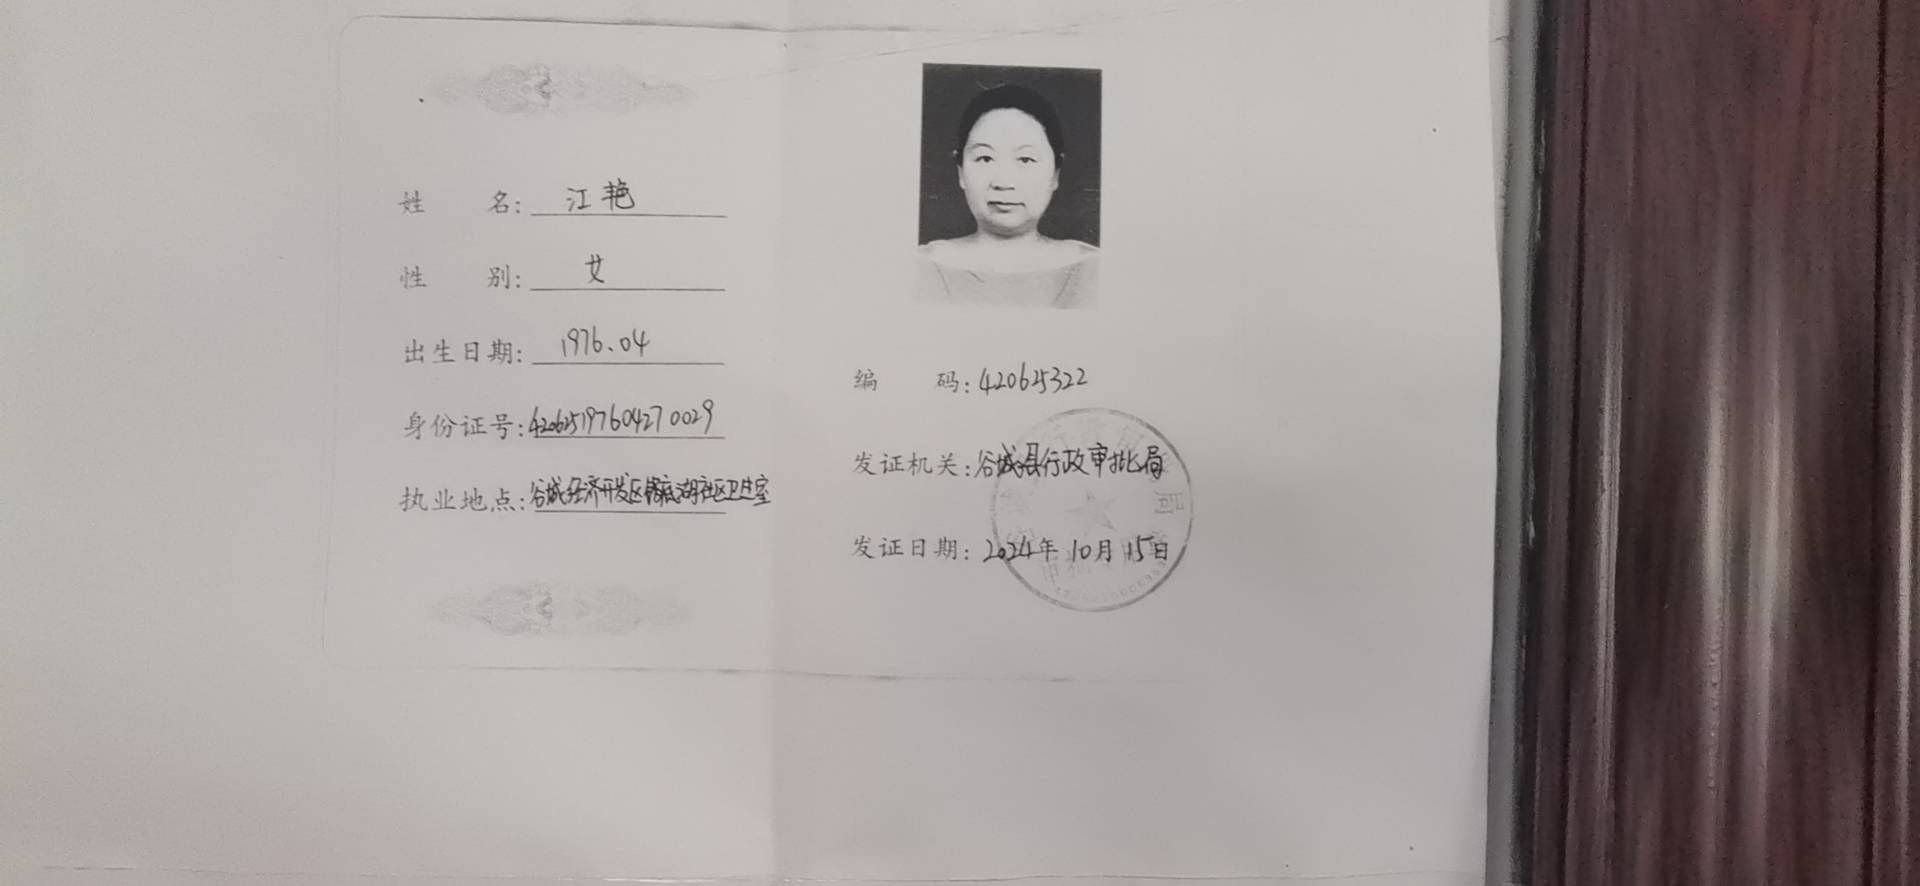 姓名：江艳
性别：女
出生日期：1976.04
身份证号：420625197604270029
执业地点：谷城经济开发区锅底湖社区卫生室
编码：420625322
发证机关：谷城县行政审批局
发证日期：2024年10月15日